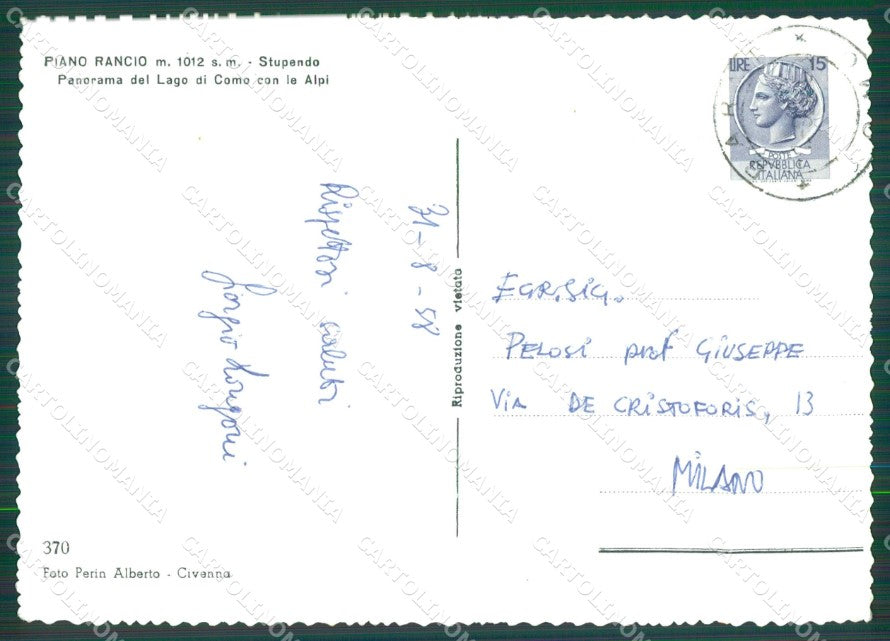 PIANO RANCIO m. 1012 s. m. - Stupendo
Panorama del Lago di Como con le Alpi
LIRE 15
POSTE
REPVBBLICA
ITALIANA
31-8-58
Rispettosi saluti
Giorgio Longoni
Riproduzione vietata
EGR. SIG.
PELOSI prof GIUSEPPE
VIA DE CRISTOFORIS, 13
MILANO
370
Foto Perin Alberto - Civenna
CARTOLINOMANIA